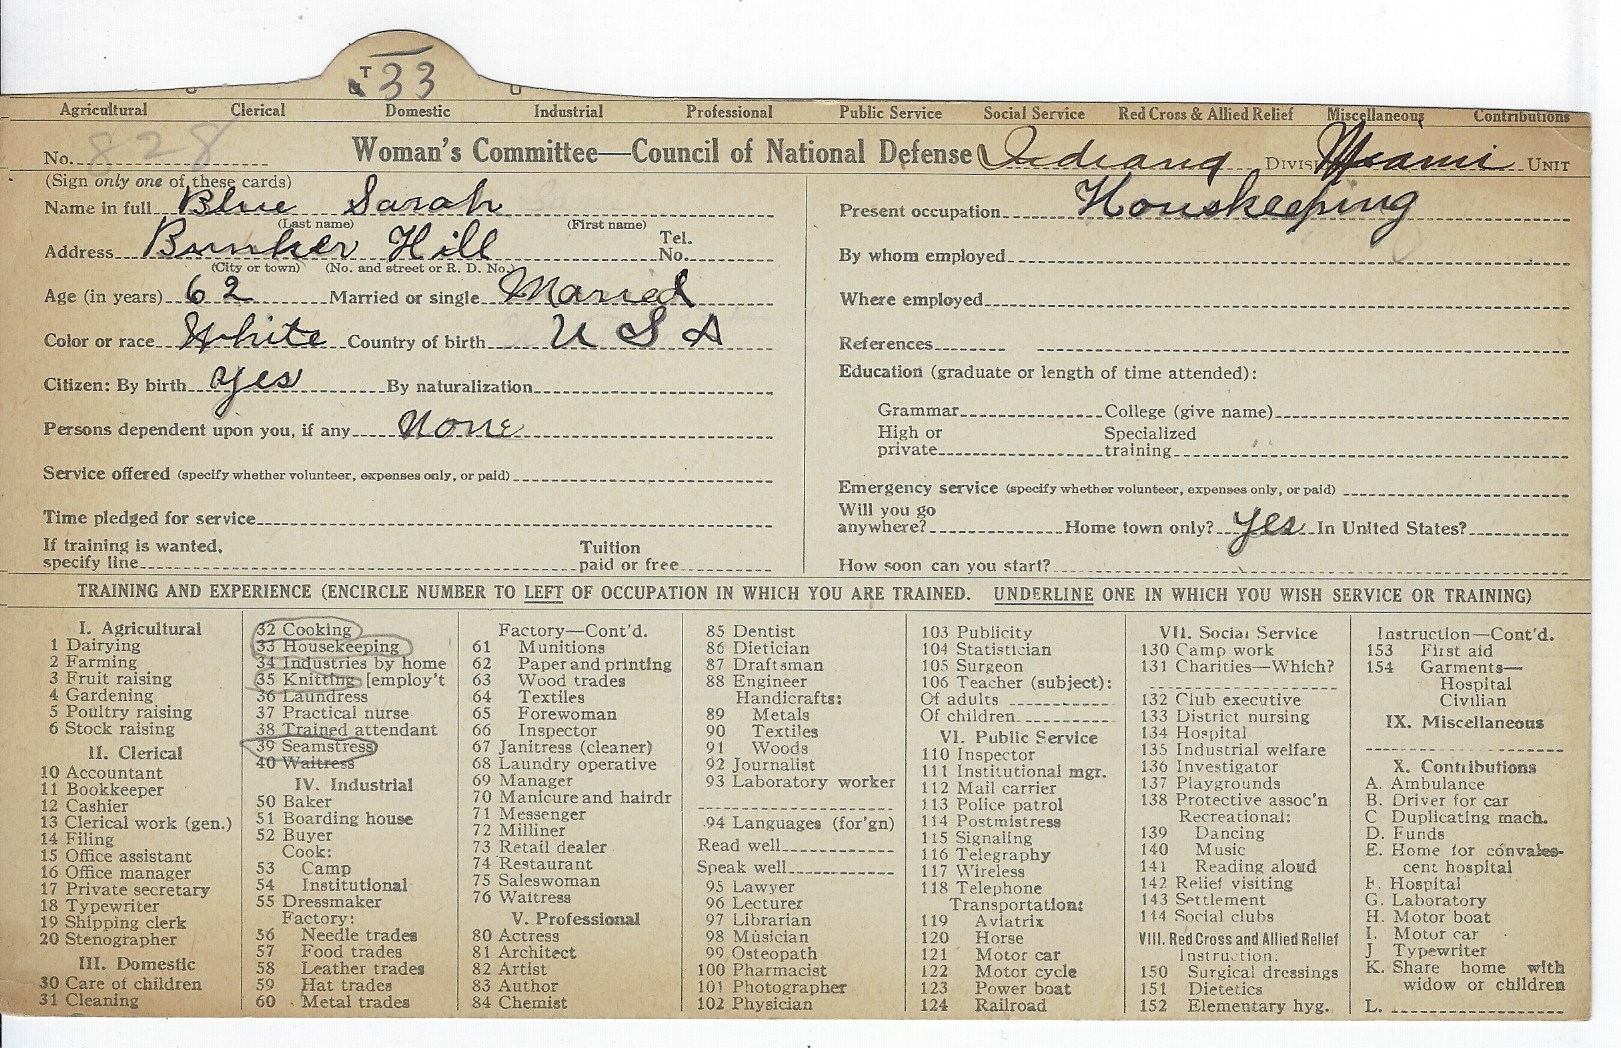 T 33
Agricultural Clerical Domestic Industrial Professional Public Service Social Service Red Cross & Allied Relief Miscellaneous Contributions
No. 828 Woman's Committee—Council of National Defense Indiana Divis Miami Unit
(Sign only one of these cards)
Name in full Blue Sarah
(Last name) (First name)
Address Bunker Hill Tel. No.
(City or town) (No. and street or R. D. No.)
Age (in years) 62 Married or single Maried
Color or race White Country of birth U S A
Citizen: By birth yes By naturalization
Persons dependent upon you, if any none
Service offered (specify whether volunteer, expenses only, or paid)
Time pledged for service
If training is wanted, specify line Tuition paid or free
Present occupation Houskeeping
By whom employed
Where employed
References
Education (graduate or length of time attended):
Grammar College (give name)
High or private Specialized training
Emergency service (specify whether volunteer, expenses only, or paid)
Will you go anywhere? Home town only? yes In United States?
How soon can you start?
TRAINING AND EXPERIENCE (ENCIRCLE NUMBER TO LEFT OF OCCUPATION IN WHICH YOU ARE TRAINED. UNDERLINE ONE IN WHICH YOU WISH SERVICE OR TRAINING)
I. Agricultural
1 Dairying
2 Farming
3 Fruit raising
4 Gardening
5 Poultry raising
6 Stock raising
II. Clerical
10 Accountant
11 Bookkeeper
12 Cashier
13 Clerical work (gen.)
14 Filing
15 Office assistant
16 Office manager
17 Private secretary
18 Typewriter
19 Shipping clerk
20 Stenographer
III. Domestic
30 Care of children
31 Cleaning
32 Cooking
33 Housekeeping
34 Industries by home
35 Knitting [employ't
36 Laundress
37 Practical nurse
38 Trained attendant
39 Seamstress
40 Waitress
IV. Industrial
50 Baker
51 Boarding house
52 Buyer
Cook:
53 Camp
54 Institutional
55 Dressmaker
Factory:
56 Needle trades
57 Food trades
58 Leather trades
59 Hat trades
60 Metal trades
Factory—Cont'd.
61 Munitions
62 Paper and printing
63 Wood trades
64 Textiles
65 Forewoman
66 Inspector
67 Janitress (cleaner)
68 Laundry operative
69 Manager
70 Manicure and hairdr
71 Messenger
72 Milliner
73 Retail dealer
74 Restaurant
75 Saleswoman
76 Waitress
V. Professional
80 Actress
81 Architect
82 Artist
83 Author
84 Chemist
85 Dentist
86 Dietician
87 Draftsman
88 Engineer
Handicrafts:
89 Metals
90 Textiles
91 Woods
92 Journalist
93 Laboratory worker
94 Languages (for'gn)
Read well
Speak well
95 Lawyer
96 Lecturer
97 Librarian
98 Musician
99 Osteopath
100 Pharmacist
101 Photographer
102 Physician
103 Publicity
104 Statistician
105 Surgeon
106 Teacher (subject):
Of adults
Of children
VI. Public Service
110 Inspector
111 Institutional mgr.
112 Mail carrier
113 Police patrol
114 Postmistress
115 Signaling
116 Telegraphy
117 Wireless
118 Telephone
Transportation:
119 Aviatrix
120 Horse
121 Motor car
122 Motor cycle
123 Power boat
124 Railroad
VII. Social Service
130 Camp work
131 Charities—Which?
132 Club executive
133 District nursing
134 Hospital
135 Industrial welfare
136 Investigator
137 Playgrounds
138 Protective assoc'n
Recreational:
139 Dancing
140 Music
141 Reading aloud
142 Relief visiting
143 Settlement
144 Social clubs
VIII. Red Cross and Allied Relief
Instruction:
150 Surgical dressings
151 Dietetics
152 Elementary hyg.
Instruction—Cont'd.
153 First aid
154 Garments—
Hospital
Civilian
IX. Miscellaneous
X. Contributions
A. Ambulance
B. Driver for car
C Duplicating mach.
D. Funds
E. Home for convales-
cent hospital
F. Hospital
G. Laboratory
H. Motor boat
I. Motor car
J Typewriter
K. Share home with
widow or children
L.